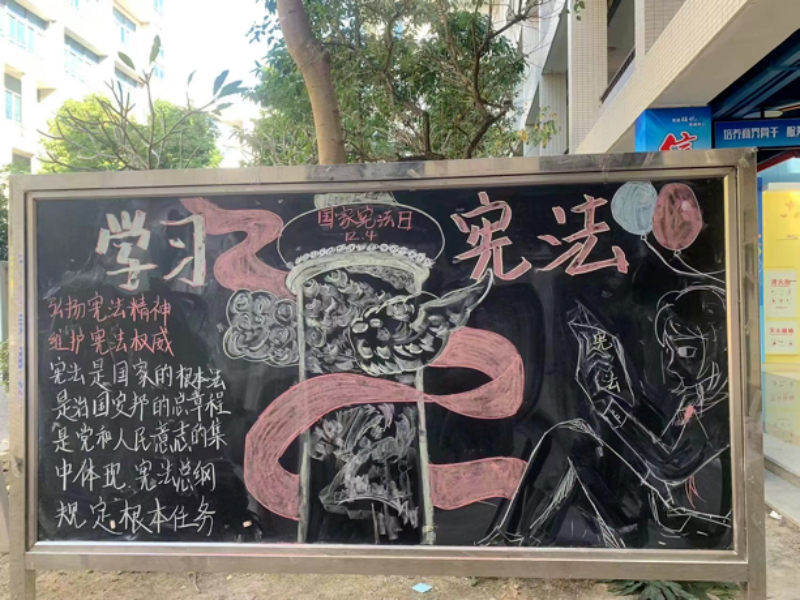 学习
国家宪法日
12.4
宪法
弘扬宪法精神
维护宪法权威
宪法是国家的根本法
是治国安邦的总章程
是党和人民意志的集
中体现.宪法总纲
规定根本任务
宪法
培养商界骨干 服